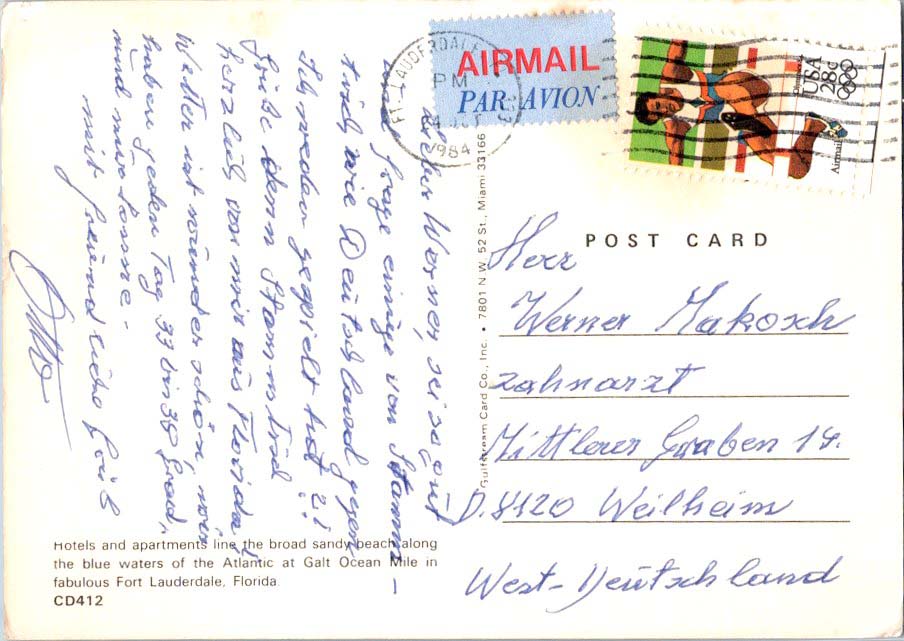 AIRMAIL
PAR AVION
FT. LAUDERDALE
PM
1984
USA
28c
Airmail
POST CARD
Lieber Werner, sei so gut
und frage einige vom Stamm-
tisch wie Deutschland gegen
Schweden gespielt hat?!
Grüße den Stammtisch
herzlich von mir aus Florida!
Wetter ist wunderschön, wir
haben jeden Tag 33 bis 38 Grad,
und nur Sonne -
mit freundlichs Grüß
Otto
Herr
Werner Makosch
Zahnarzt
Mittlerer Graben 14.
D.8120 Weilheim
West-Deutschland
Hotels and apartments line the broad sandy beach along
the blue waters of the Atlantic at Galt Ocean Mile in
fabulous Fort Lauderdale, Florida
CD412
Gulfstream Card Co., Inc. • 7801 N.W. 52 St., Miami 33166